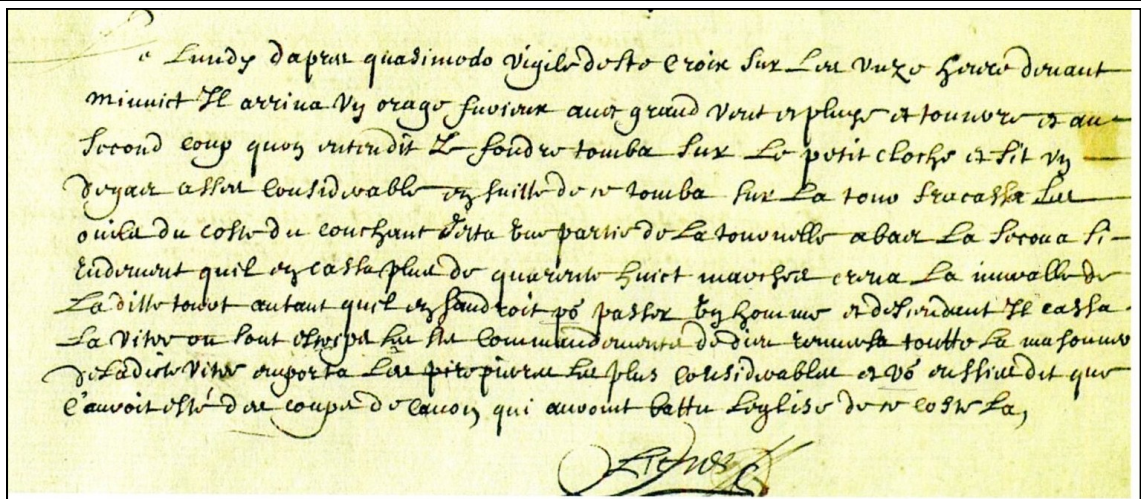 e Lundy dapres quasimodo vigile de ste Croix sur Les unze heure devant
minuict Il arriva un orage furieux avec grand vent et pluye et tonnere et au
second coup quon entendit Le foudre tomba sur Le petit cloche et fit un
degat asses considerable en suitte de ce tomba sur La tour fracassa Les
ouies du coste du couchant jetta une partie de La tournelle abas La secoua si
rudement quil en cassa plus de quarente huict marches creva La muralle de
La ditte tour autant quil en faudroit po passer un homme et descendant Il cassa
La vitre ou sont les commandements de dieu renversa toutte La massonne
de La dicte vitre emporta Les pierre les plus considerables et vo eussies dit que
c'avoit esté des coups de canon qui avoint battu Leglise de ce coste La,